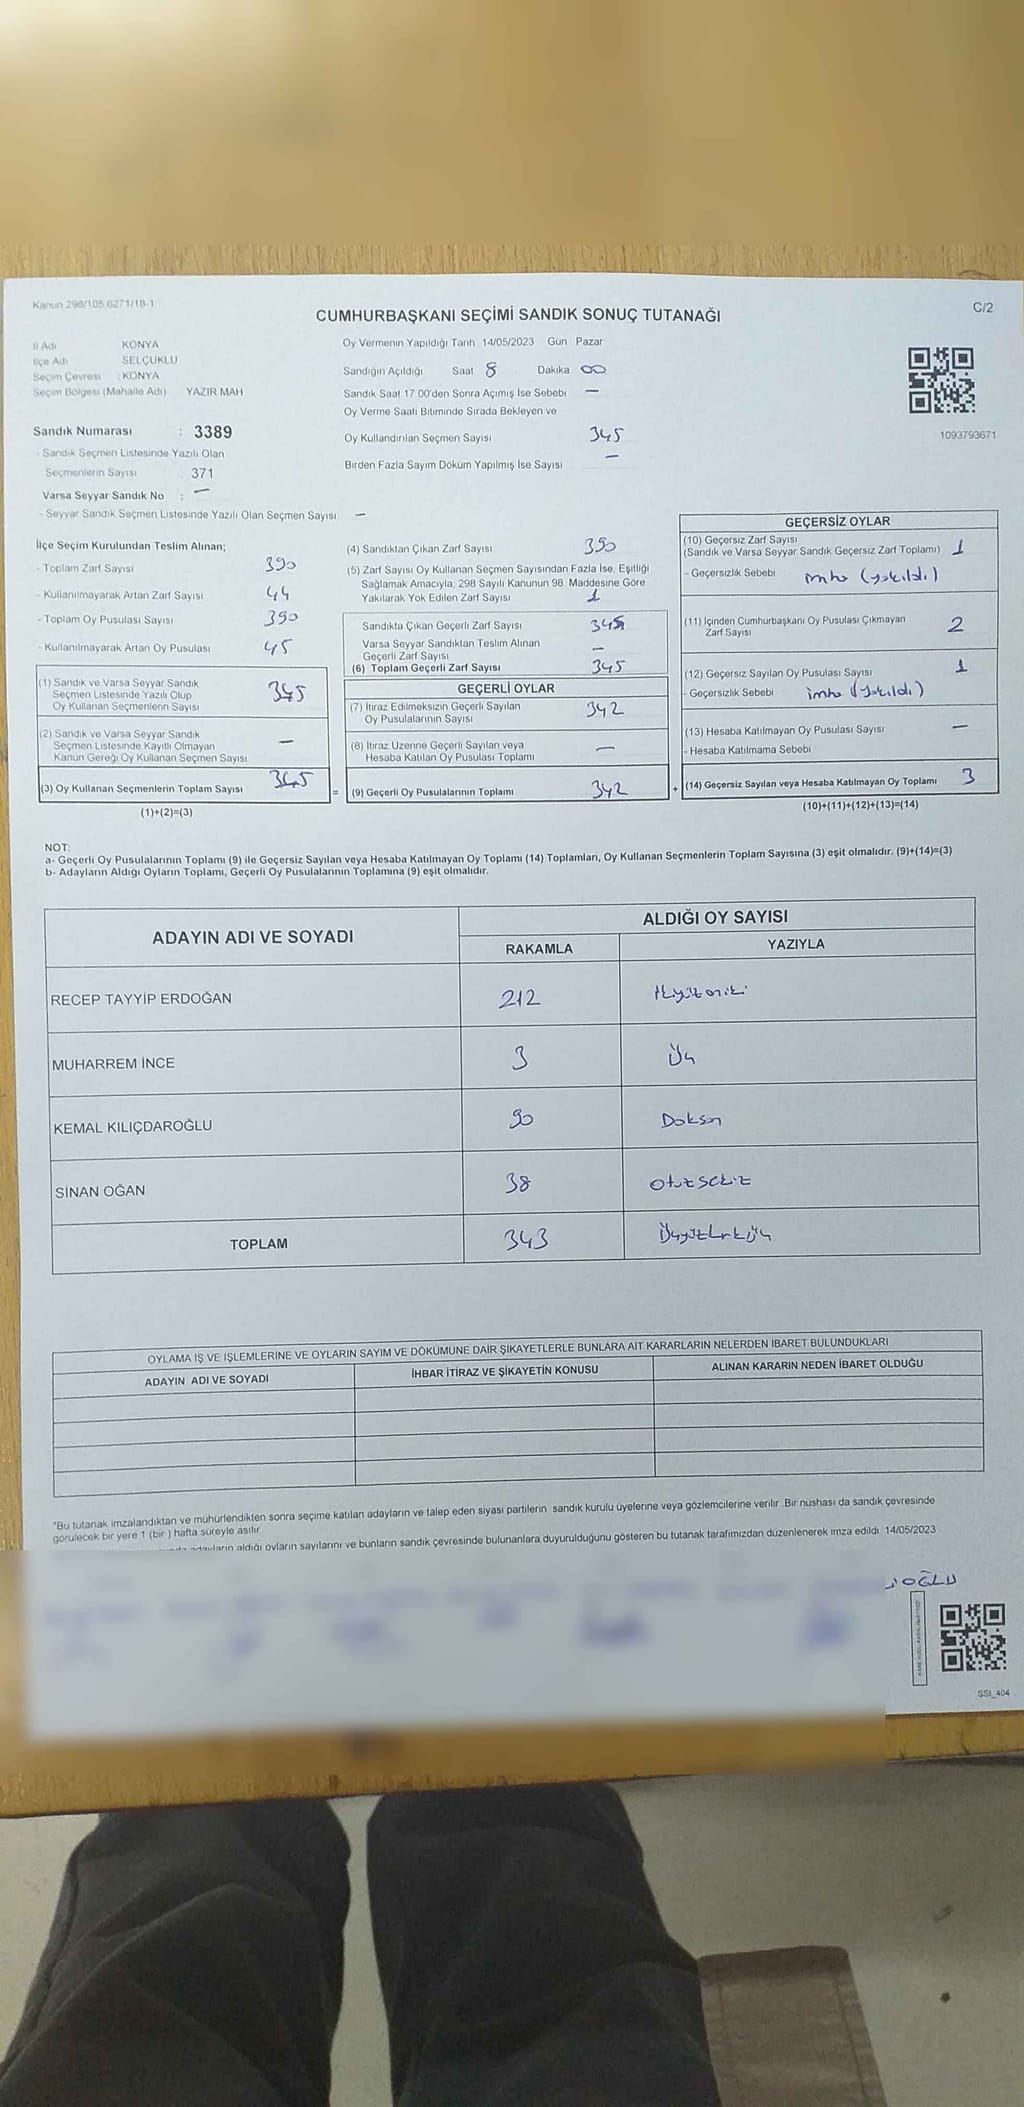 Kanun 298/105,6271/18-1
C/2
CUMHURBAŞKANI SEÇİMİ SANDIK SONUÇ TUTANAĞI
İl Adı KONYA
İlçe Adı SELÇUKLU
Seçim Çevresi : KONYA
Seçim Bölgesi (Mahalle Adı) YAZIR MAH
Sandık Numarası : 3389
- Sandık Seçmen Listesinde Yazılı Olan
Seçmenlerin Sayısı 371
Varsa Seyyar Sandık No : —
- Seyyar Sandık Seçmen Listesinde Yazılı Olan Seçmen Sayısı —
Oy Vermenin Yapıldığı Tarih 14/05/2023 Gün Pazar
Sandığın Açıldığı Saat 8 Dakika 00
Sandık Saat 17 00'den Sonra Açımış İse Sebebi —
Oy Verme Saati Bitiminde Sırada Bekleyen ve
Oy Kullandırılan Seçmen Sayısı 345
Birden Fazla Sayım Döküm Yapılmış İse Sayısı —
1093793671
İlçe Seçim Kurulundan Teslim Alınan;
- Toplam Zarf Sayısı 390
- Kullanılmayarak Artan Zarf Sayısı 44
- Toplam Oy Pusulası Sayısı 390
- Kullanılmayarak Artan Oy Pusulası 45
(1) Sandık ve Varsa Seyyar Sandık
Seçmen Listesinde Yazılı Olup
Oy Kullanan Seçmenlerin Sayısı 345
(2) Sandık ve Varsa Seyyar Sandık
Seçmen Listesinde Kayıtlı Olmayan
Kanun Gereği Oy Kullanan Seçmen Sayısı —
(3) Oy Kullanan Seçmenlerin Toplam Sayısı 345
(1)+(2)=(3)
(4) Sandıktan Çıkan Zarf Sayısı 390
(5) Zarf Sayısı Oy Kullanan Seçmen Sayısından Fazla İse, Eşitliği
Sağlamak Amacıyla, 298 Sayılı Kanunun 98. Maddesine Göre
Yakılarak Yok Edilen Zarf Sayısı 1
Sandıkta Çıkan Geçerli Zarf Sayısı 345
Varsa Seyyar Sandıktan Teslim Alınan
Geçerli Zarf Sayısı —
(6) Toplam Geçerli Zarf Sayısı 345
GEÇERLİ OYLAR
(7) İtiraz Edilmeksizin Geçerli Sayılan
Oy Pusulalarının Sayısı 342
(8) İtiraz Üzerine Geçerli Sayılan veya
Hesaba Katılan Oy Pusulası Toplamı —
= (9) Geçerli Oy Pusulalarının Toplamı 342
GEÇERSİZ OYLAR
(10) Geçersiz Zarf Sayısı
(Sandık ve Varsa Seyyar Sandık Geçersiz Zarf Toplamı) 1
- Geçersizlik Sebebi imha (yakıldı)
(11) İçinden Cumhurbaşkanı Oy Pusulası Çıkmayan
Zarf Sayısı 2
(12) Geçersiz Sayılan Oy Pusulası Sayısı 1
- Geçersizlik Sebebi imha (yakıldı)
(13) Hesaba Katılmayan Oy Pusulası Sayısı —
- Hesaba Katılmama Sebebi
+ (14) Geçersiz Sayılan veya Hesaba Katılmayan Oy Toplamı 3
(10)+(11)+(12)+(13)=(14)
NOT:
a- Geçerli Oy Pusulalarının Toplamı (9) ile Geçersiz Sayılan veya Hesaba Katılmayan Oy Toplamı (14) Toplamları, Oy Kullanan Seçmenlerin Toplam Sayısına (3) eşit olmalıdır. (9)+(14)=(3)
b- Adayların Aldığı Oyların Toplamı, Geçerli Oy Pusulalarının Toplamına (9) eşit olmalıdır.
ADAYIN ADI VE SOYADI
ALDIĞI OY SAYISI
RAKAMLA YAZIYLA
RECEP TAYYİP ERDOĞAN 212 İkiyüzoniki
MUHARREM İNCE 3 Üç
KEMAL KILIÇDAROĞLU 90 Doksan
SİNAN OĞAN 38 otuzsekiz
TOPLAM 343 Üçyüzkırküç
OYLAMA İŞ VE İŞLEMLERİNE VE OYLARIN SAYIM VE DÖKÜMÜNE DAİR ŞİKAYETLERLE BUNLARA AİT KARARLARIN NELERDEN İBARET BULUNDUKLARI
ADAYIN ADI VE SOYADI İHBAR İTİRAZ VE ŞİKAYETİN KONUSU ALINAN KARARIN NEDEN İBARET OLDUĞU
*Bu tutanak imzalandıktan ve mühürlendikten sonra seçime katılan adayların ve talep eden siyasi partilerin sandık kurulu üyelerine veya gözlemcilerine verilir .Bir nüshası da sandık çevresinde
görülecek bir yere 1 (bir ) hafta süreyle asılır
adayların aldığı oyların sayılarını ve bunların sandık çevresinde bulunanlara duyurulduğunu gösteren bu tutanak tarafımızdan düzenlenerek imza edildi. 14/05/2023
OĞLU
SSI_404